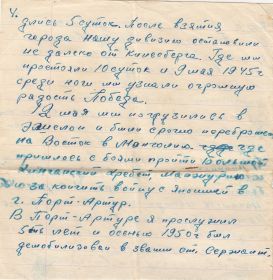 4.
длись 5 суток. После взятия
города нашу дивизию остановили
не далеко от кинесберга. Где мы
простояли 10 суток и 9 мая 1945 г
среди ночи мы узнали огромную
радость Победа.
12 мая мы погрузились в
Эшелон и были срочно переброшены
на Восток в Манголию где
пришлось с боями пройти Большой
Хинганский хребет, Манжурию
за кончить войну с Японией в
г. Порт-Артур.
В Порт-Артуре я прослужил
5ть лет и осенью 1950 г был
демобилизован в звании ст. Сержант.